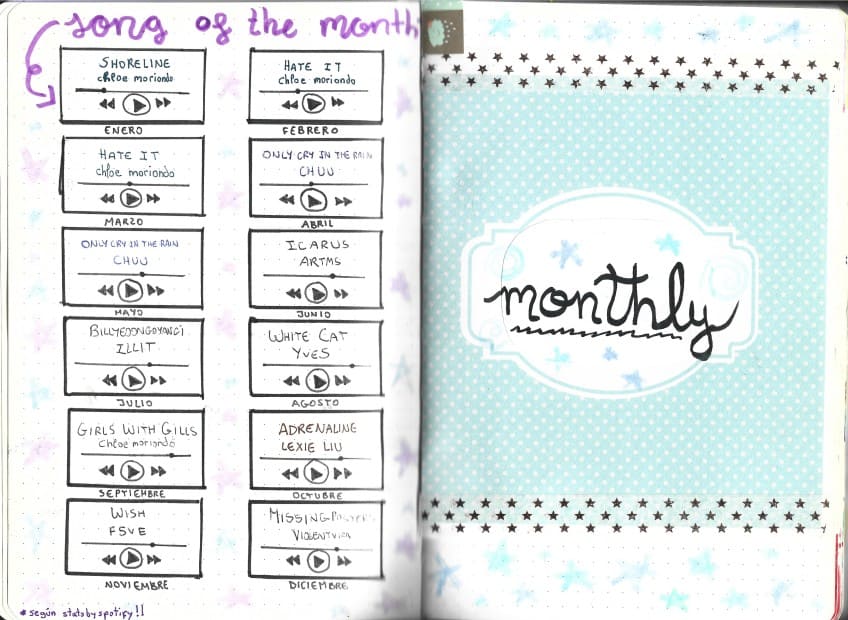 song of the month
SHORELINE
chloe moriondo
ENERO
HATE IT
chloe moriondo
FEBRERO
HATE IT
chloe moriondo
MARZO
ONLY CRY IN THE RAIN
CHUU
ABRIL
ONLY CRY IN THE RAIN
CHUU
MAYO
ICARUS
ARTMS
JUNIO
BILLYEOONGOYANGI
ILLIT
JULIO
WHITE CAT
YVES
AGOSTO
GIRLS WITH GILLS
Chloe moriondo
SEPTIEMBRE
ADRENALINE
LEXIE LIU
OCTUBRE
WISH
FSVE
NOVIEMBRE
MISSING POSTERS
VIOLENT VIRA
DICIEMBRE
*según statsbyspotify!!
monthly